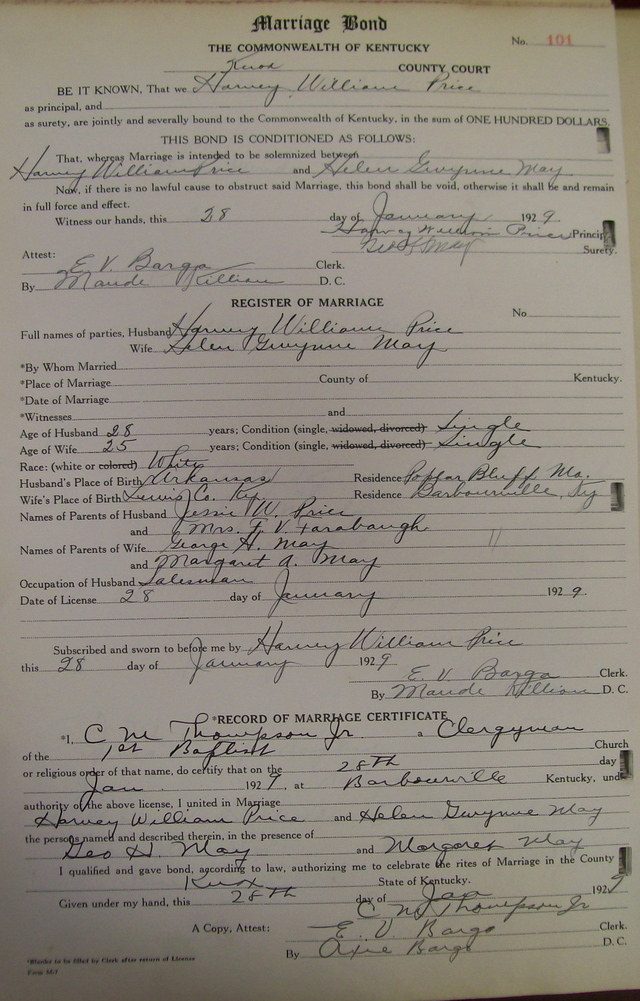 Marriage Bond
No. 101
THE COMMONWEALTH OF KENTUCKY
Knox COUNTY COURT
BE IT KNOWN, That we Harvey William Price
as principal, and
as surety, are jointly and severally bound to the Commonwealth of Kentucky, in the sum of ONE HUNDRED DOLLARS.
THIS BOND IS CONDITIONED AS FOLLOWS:
That, whereas Marriage is intended to be solemnized between
Harvey William Price and Helen Gwynne May
Now, if there is no lawful cause to obstruct said Marriage, this bond shall be void, otherwise it shall be and remain
in full force and effect.
Witness our hands, this 28 day of January 1929.
Harvey William Price Princip
Geo H May Surety.
Attest:
E. V. Bargo Clerk.
By Maude Killian D. C.
REGISTER OF MARRIAGE
No
Full names of parties, Husband Harvey William Price
Wife Helen Gwynne May
*By Whom Married
*Place of Marriage County of Kentucky.
*Date of Marriage
*Witnesses and
Age of Husband 28 years; Condition (single, widowed, divorced) Single
Age of Wife 25 years; Condition (single, widowed, divorced) Single
Race: (white or colored) White
Husband's Place of Birth Arkansas Residence Poplar Bluff Mo.
Wife's Place of Birth Lewis Co. Ky Residence Barbourville, Ky
Names of Parents of Husband Jessie W. Price
and Mrs. F. V. Farabaugh
Names of Parents of Wife George H. May
and Margaret A. May
Occupation of Husband Salesman
Date of License 28 day of January 1929.
Subscribed and sworn to before me by Harvey William Price
this 28 day of January 1929
E. V. Bargo Clerk.
By Maude Killian D. C.
*RECORD OF MARRIAGE CERTIFICATE
*I, C M Thompson Jr a Clergyman
of the 1st Baptist Church
or religious order of that name, do certify that on the 28th day
Jan. 1929, at Barbourville Kentucky, und
authority of the above license, I united in Marriage
Harvey William Price and Helen Gwynne May
the persons named and described therein, in the presence of
Geo H. May and Margaret May
I qualified and gave bond, according to law, authorizing me to celebrate the rites of Marriage in the County
Knox State of Kentucky.
Given under my hand, this 28th day of Jan 1929
C M Thompson Jr
A Copy, Attest: E. V. Bargo Clerk.
By Axie Bargo D. C.
*Blanks to be filled by Clerk after return of License